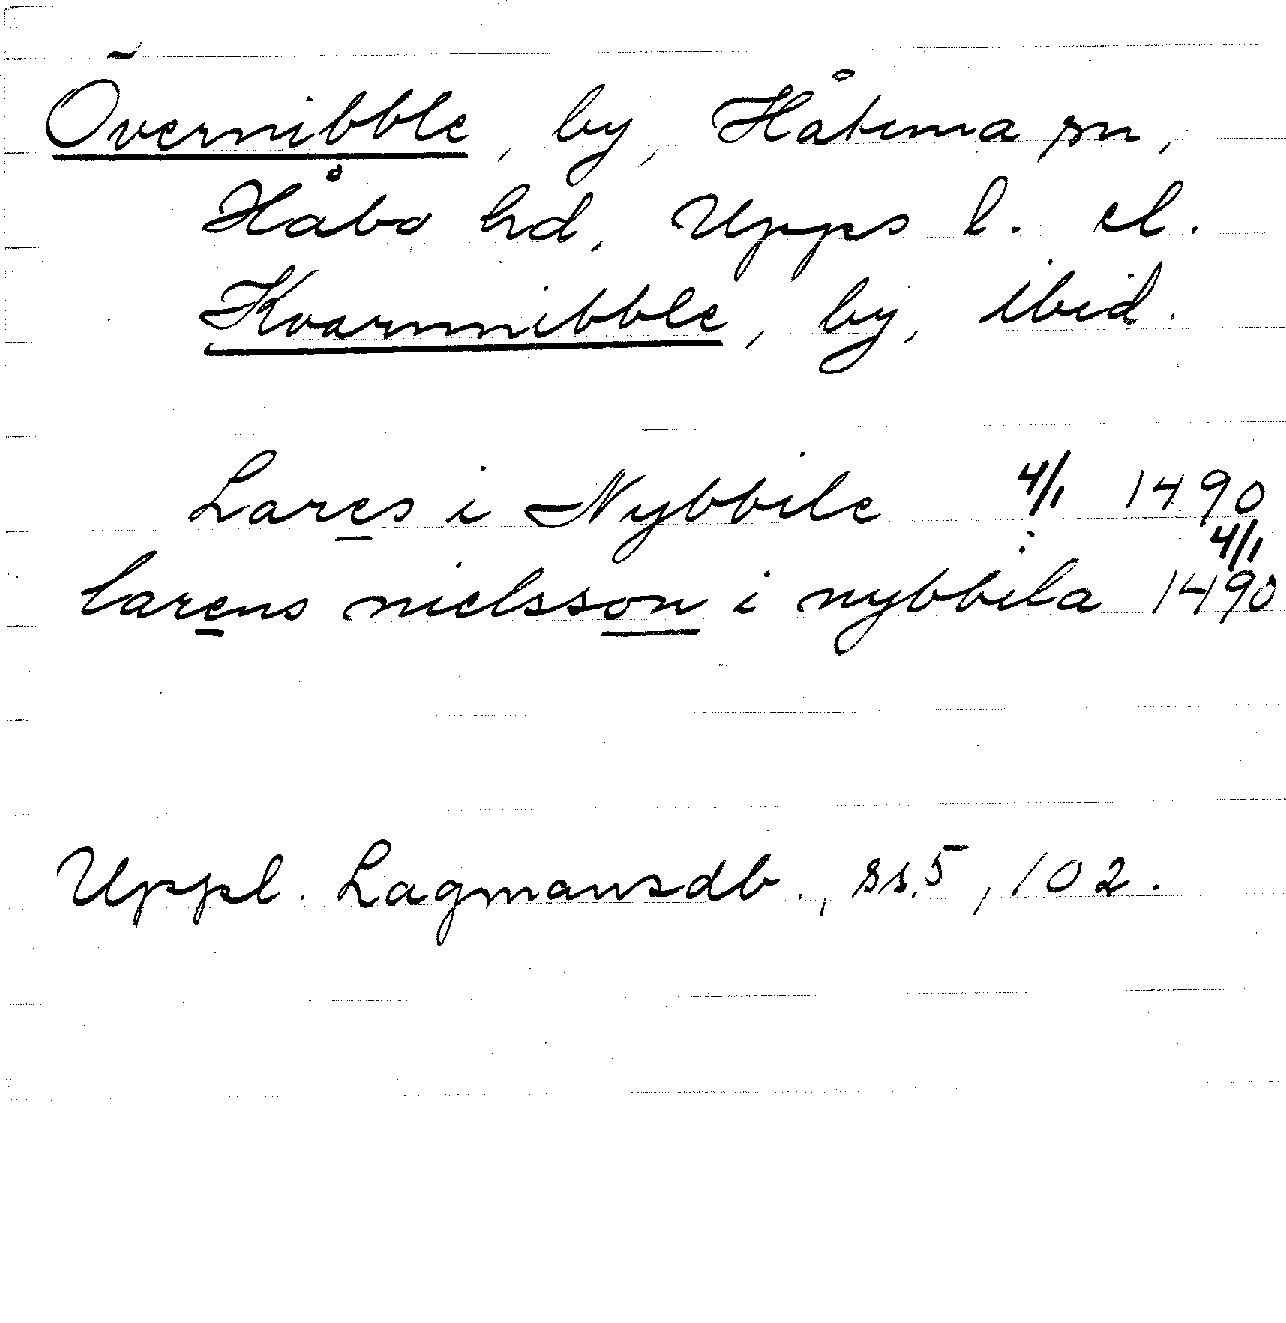 Övernibble, by, Håtuna sn,
Håbo hd, Upps l. el.
Kvarnnibble, by, ibid.
Lares i Nybbile 4/1 1490
4/1
larens nielsson i nybbila 1490
Uppl. Lagmansdb., ss. 5, 102.